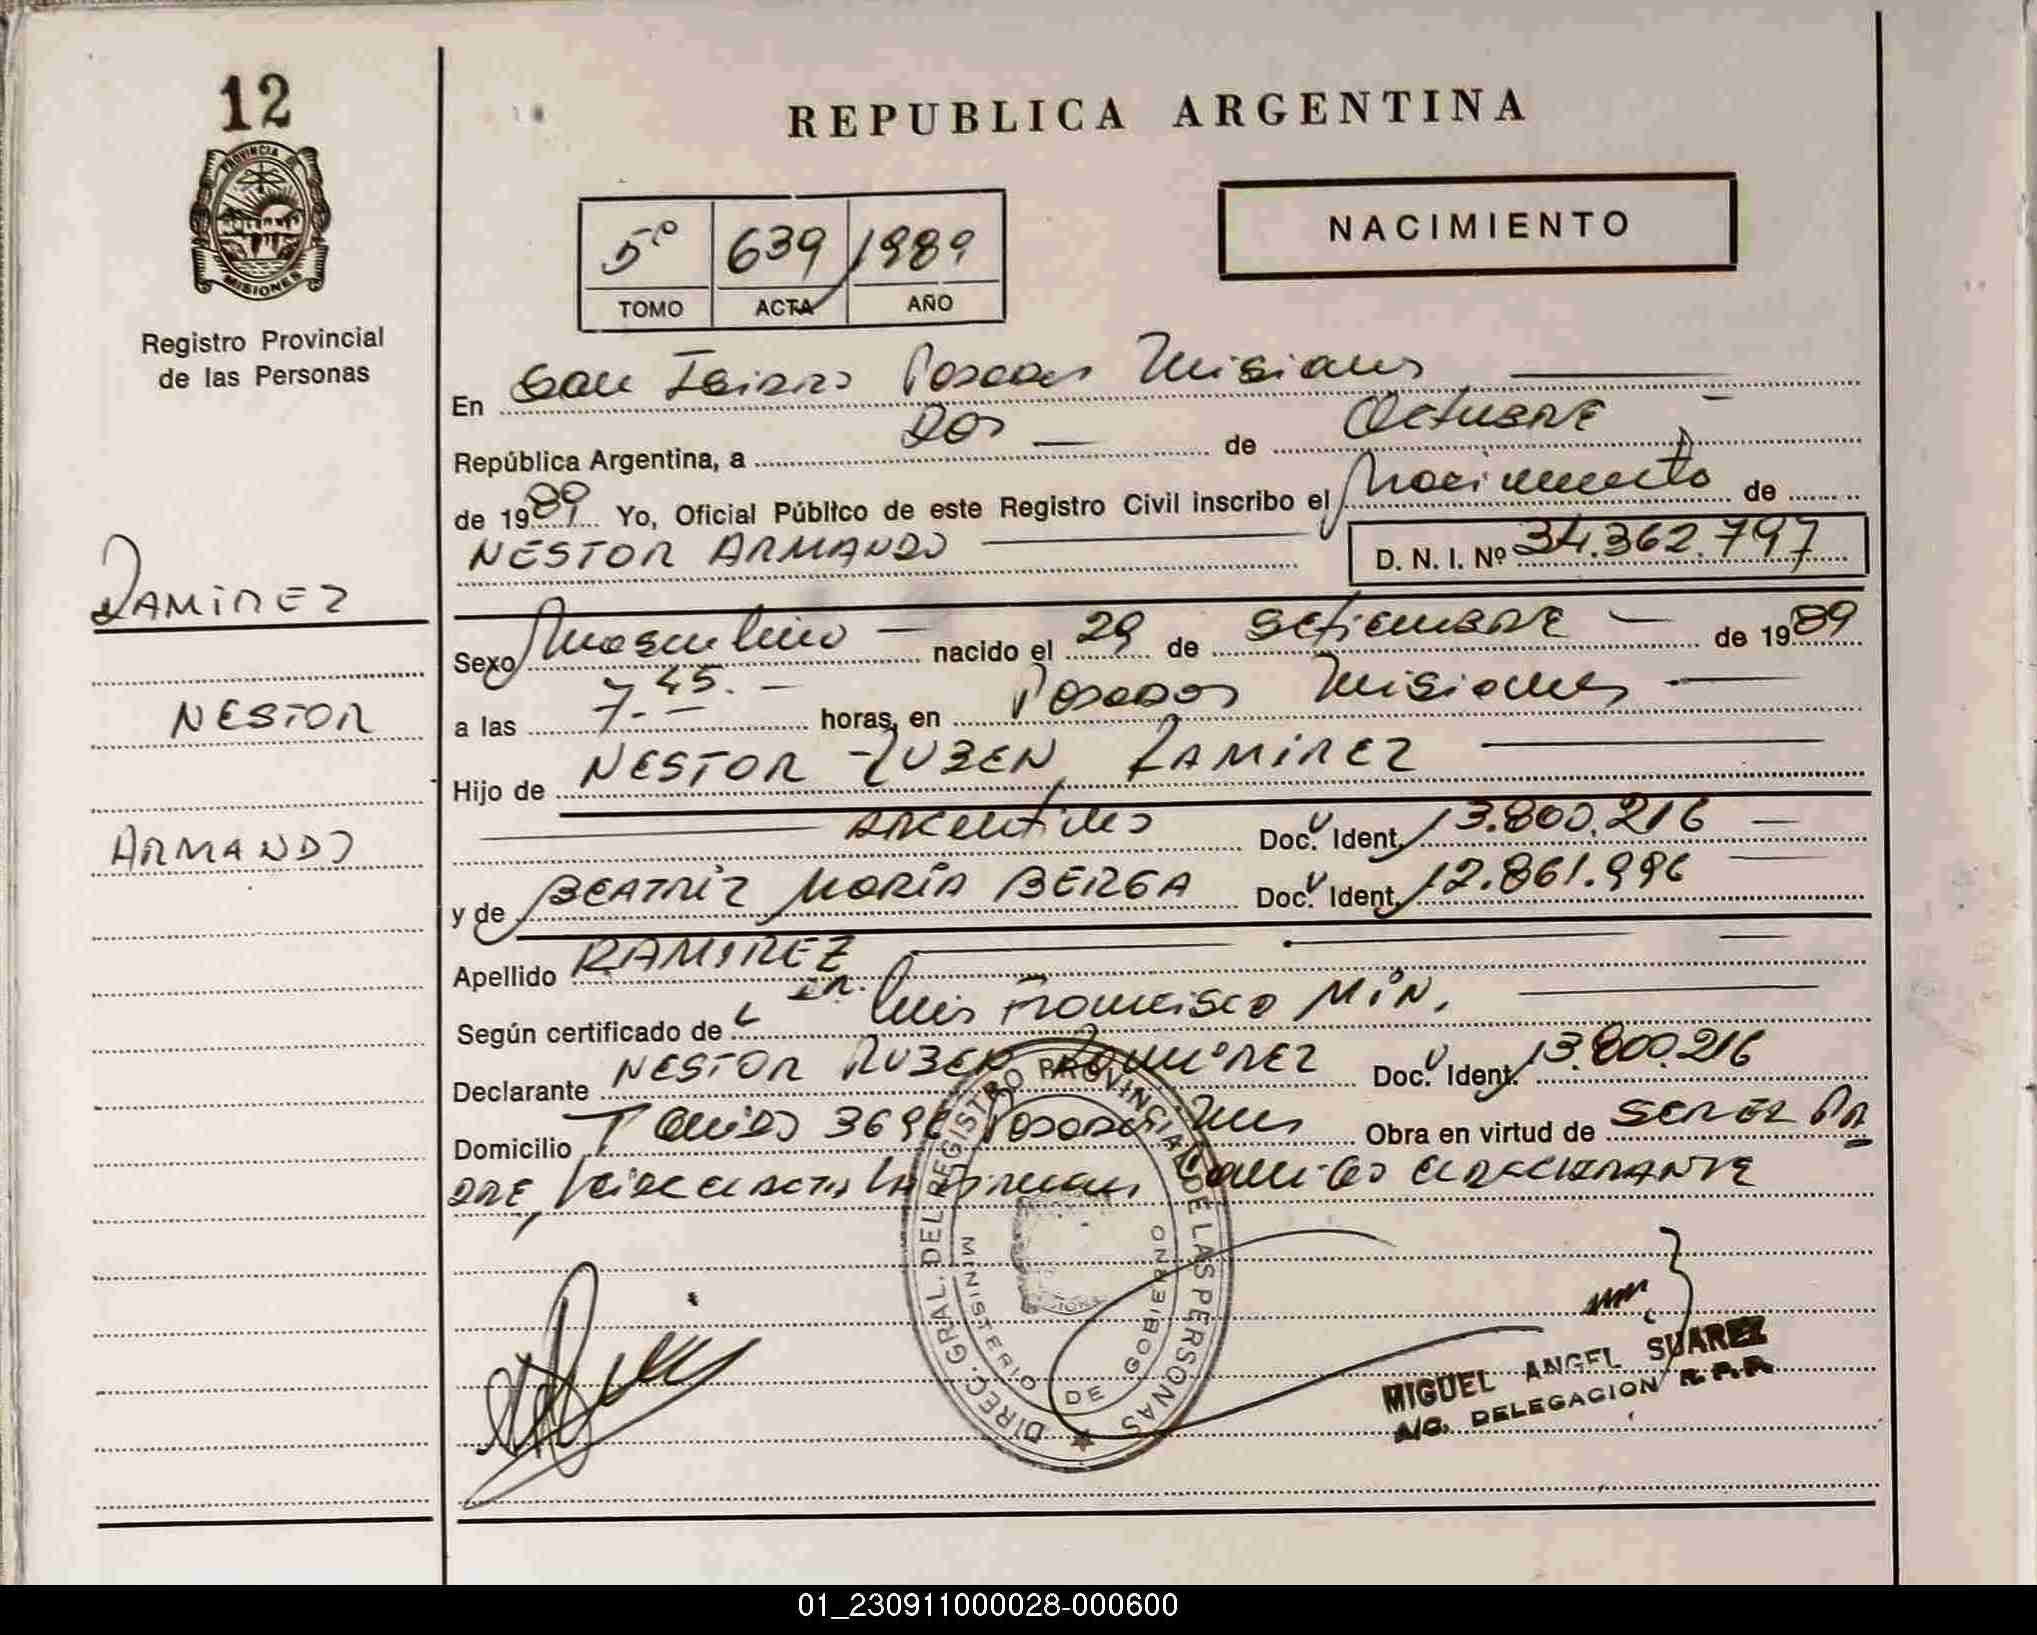 12
PROVINCIA DE
MISIONES
Registro Provincial
de las Personas
RAMIREZ
NESTOR
ARMANDO
REPUBLICA ARGENTINA
NACIMIENTO
5º 639 1989
TOMO ACTA AÑO
En San Isidro Posadas Misiones
República Argentina, a Dos de Octubre
de 1989 Yo, Oficial Público de este Registro Civil inscribo el Nacimiento de
NESTOR ARMANDO D. N. I. Nº 34.362.797
Sexo Masculino nacido el 29 de Setiembre de 1989
a las 7.45.- horas, en Posadas Misiones
Hijo de NESTOR RUBEN RAMIREZ
Argentino Doc. Ident. 13.800.216
y de BEATRIZ MARIA BERGA Doc. Ident. 12.861.996
Apellido RAMIREZ
Según certificado de Dr. Luis Francisco MIN.
Declarante NESTOR RUBEN RAMIREZ Doc. Ident. 13.800.216
Domicilio 3696 Posadas Mnes Obra en virtud de SER EL PA
DRE, leida el acta la firman conmigo el DECLARANTE
DIREC. GRAL. DEL REGISTRO PROVINCIAL DE LAS PERSONAS
MINISTERIO DE GOBIERNO
MIGUEL ANGEL SUAREZ
A/C. DELEGACION R.P.P.
01_230911000028-000600